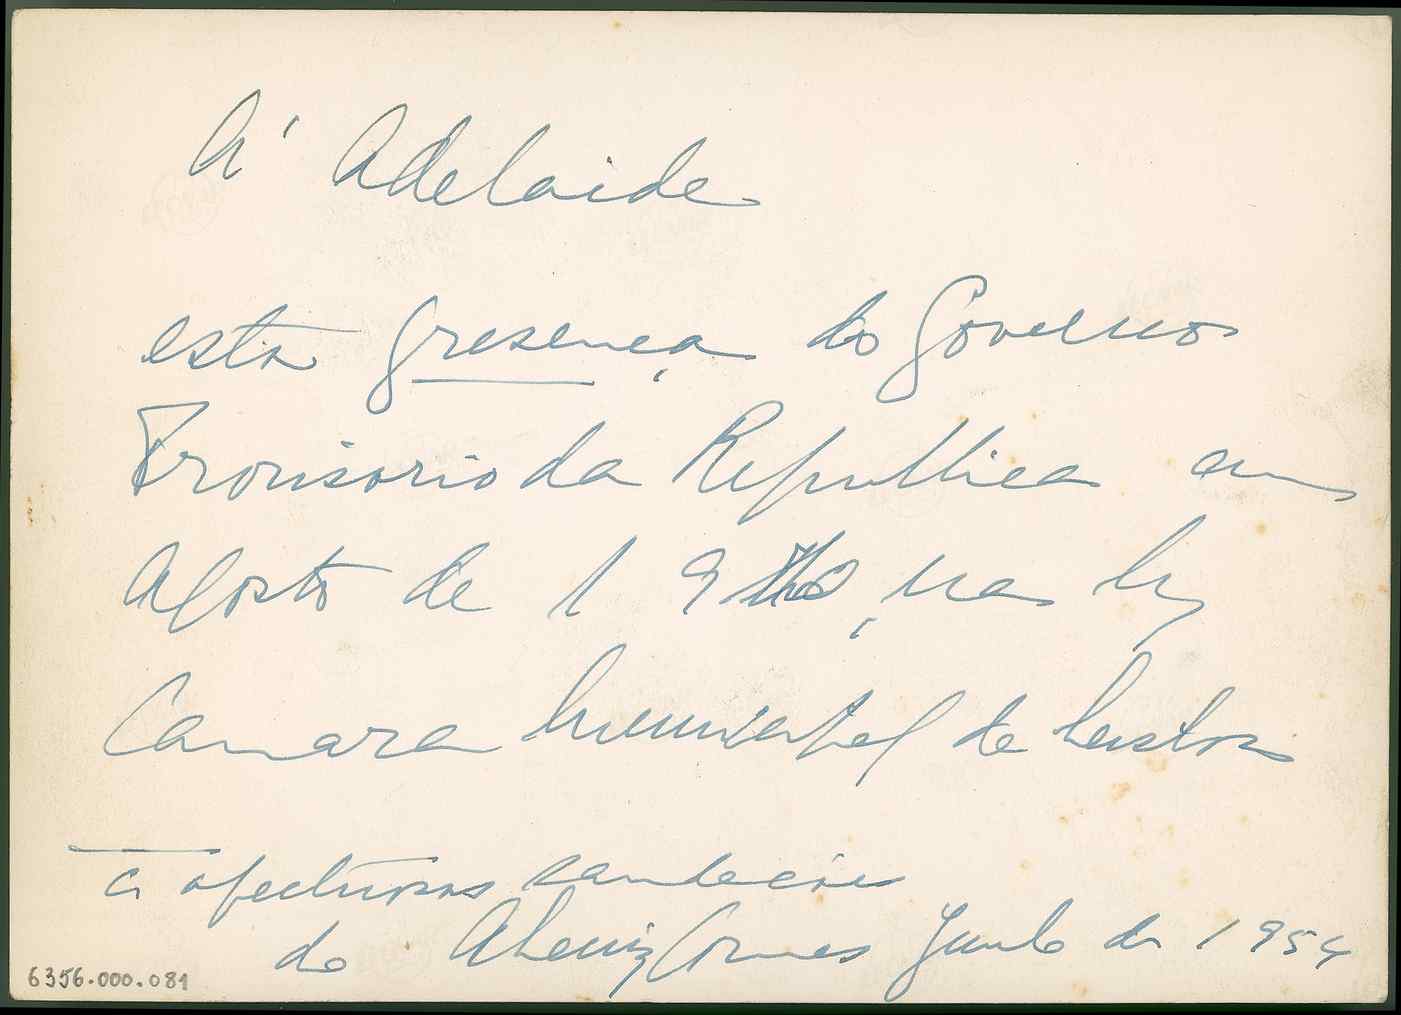 A' Adelaide
esta presença do Governo
Provisorio da Republica em
Agosto de 19 na
Camara Municipal de Lisboa
afectuosas saudações
do Gomes Junho de 1954
6356.000.081